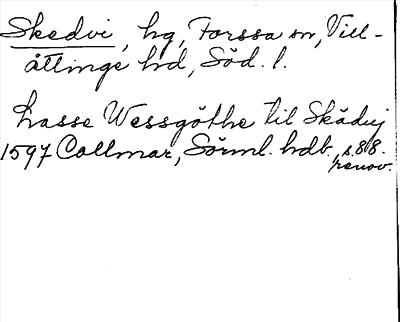 Skedvi, hg, Forssa sn, Vill-
åttinge hd, Söd. l.
Lasse Wessgöthe til Skäduj
1597 Collmar, Sörml. hdb. s. 88.
renov.